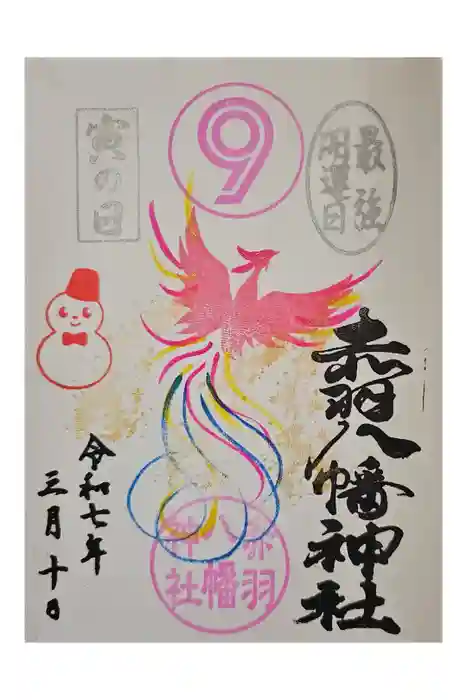 最強
開運日
9
寅の日
赤羽八幡神社
赤羽
八幡
神社
令和七年
三月十日